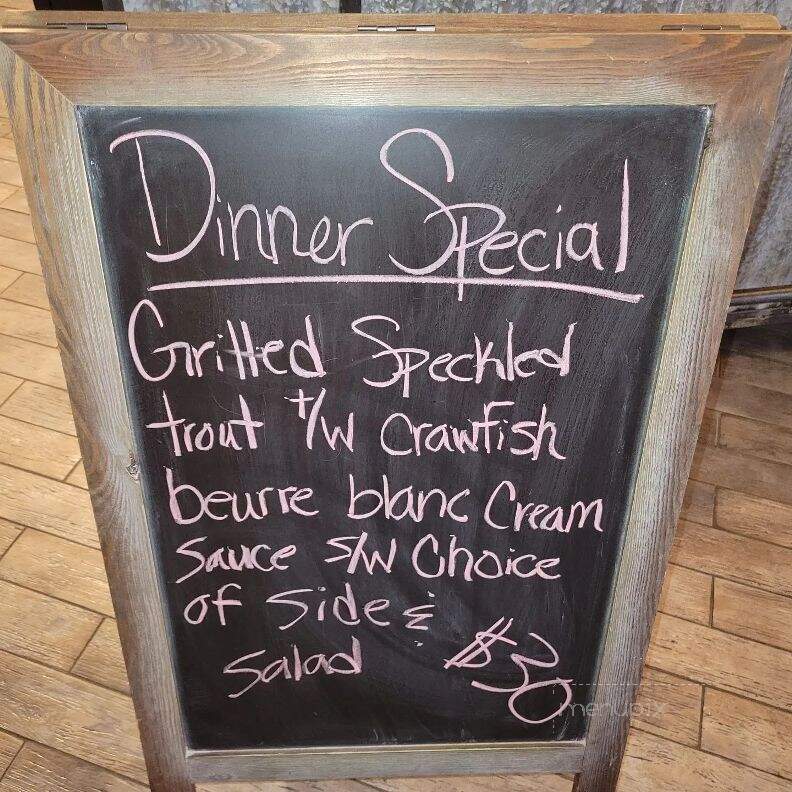 Dinner Special
Grilled Speckled
trout t/w Crawfish
beurre blanc Cream
Sauce s/w Choice
of Side &
Salad $30
menupix